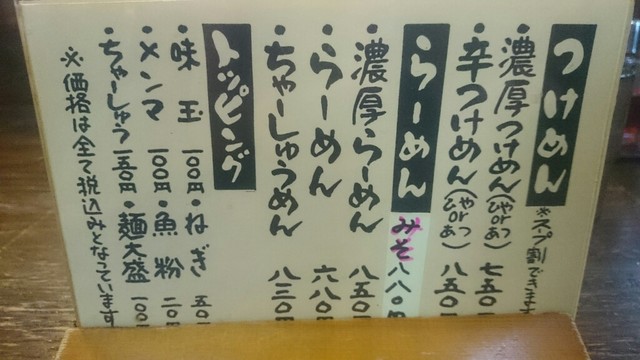 つけめん
※スープ割できます
・濃厚つけめん(ひやorあつ) 七五〇
・辛つけめん(ひやorあつ) 八五〇
らーめん
みそ 八八〇円
・濃厚らーめん 八五〇
・らーめん 六八〇円
・ちゃーしゅうめん 八三〇円
トッピング
・味玉 一〇〇円
・ねぎ 五〇
・メンマ 一〇〇円
・魚粉 二〇円
・ちゃーしゅう 一五〇円
・麺大盛 一〇〇
※価格は全て税込みとなっています